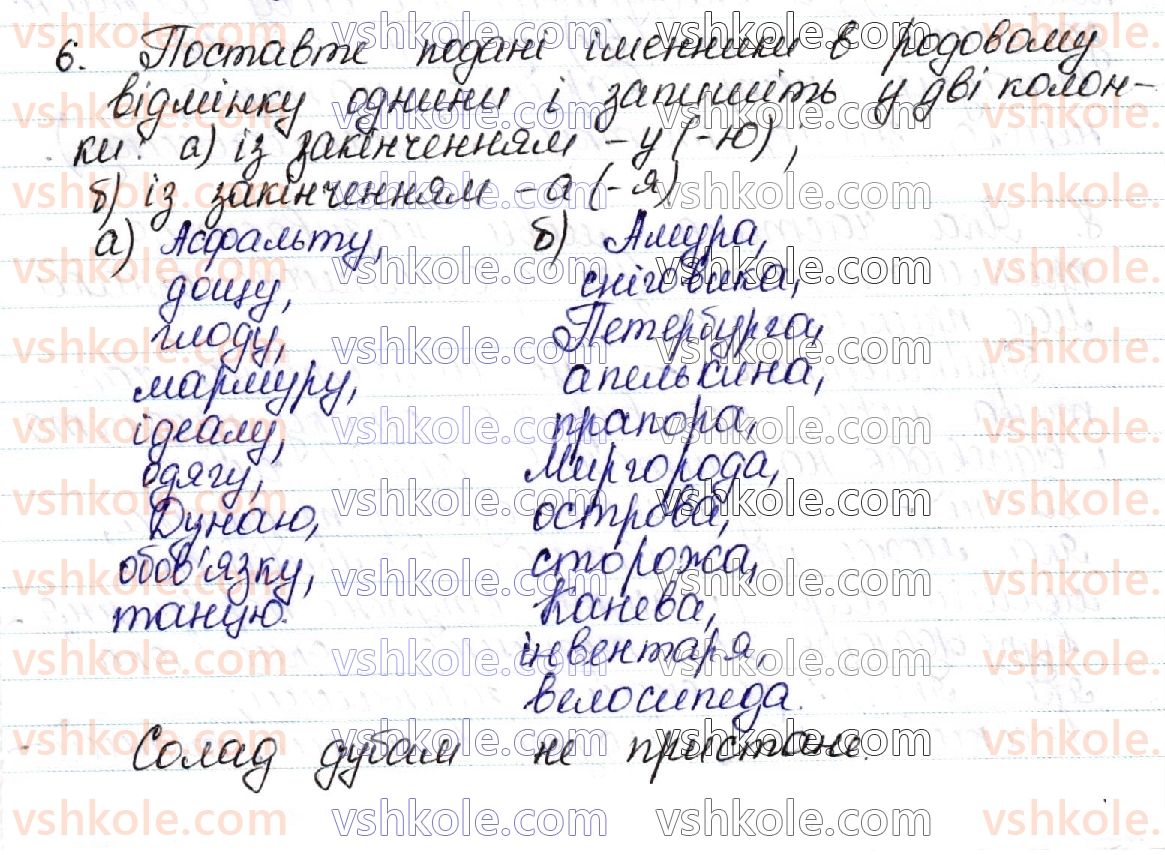 6. Поставте подані іменники в родовому
відмінку однини і запишіть у дві колон-
ки: а) із закінченням -у (-ю);
б) із закінченням -а (-я)
а) Асфальту, б) Амура,
дощу, сніговика,
глоду, Петербурга,
мармуру, апельсина,
ідеалу, прапора,
одягу, Миргорода,
Дунаю, острова,
обов'язку, сторожа,
танцю. Канева,
інвентаря,
велосипеда.
Солад дубам не пристане.
vshkole.com